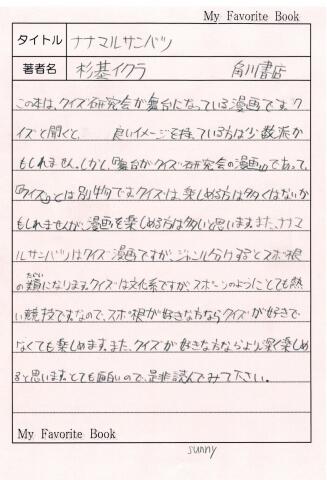 My Favorite Book
タイトル ナナマルサンバツ
著者名 杉基イクラ 角川書店
この本は、クイズ研究会が舞台になっている漫画です。ク
イズと聞くと、 良いイメージを持っている方は少数派か
もしれません。しかし、『舞台がクイズ研究会の漫画』であって、
『クイズ』とは別物です。クイズは、楽しめる方は多くはないか
もしれませんが、漫画を楽しめる方は多いと思います。また、ナナマ
ルサンバツはクイズ漫画ですが、ジャンル分けするとスポ根
の類になります。クイズは文化系ですが、スポーツのようにとても熱
たぐい
い競技です。なので、スポ根が好きな方ならクイズが好きで
なくても楽しめます。また、クイズが好きな方ならより深く楽しめ
ると思います。とても面白いので、是非読んでみて下さい。
My Favorite Book
sunny